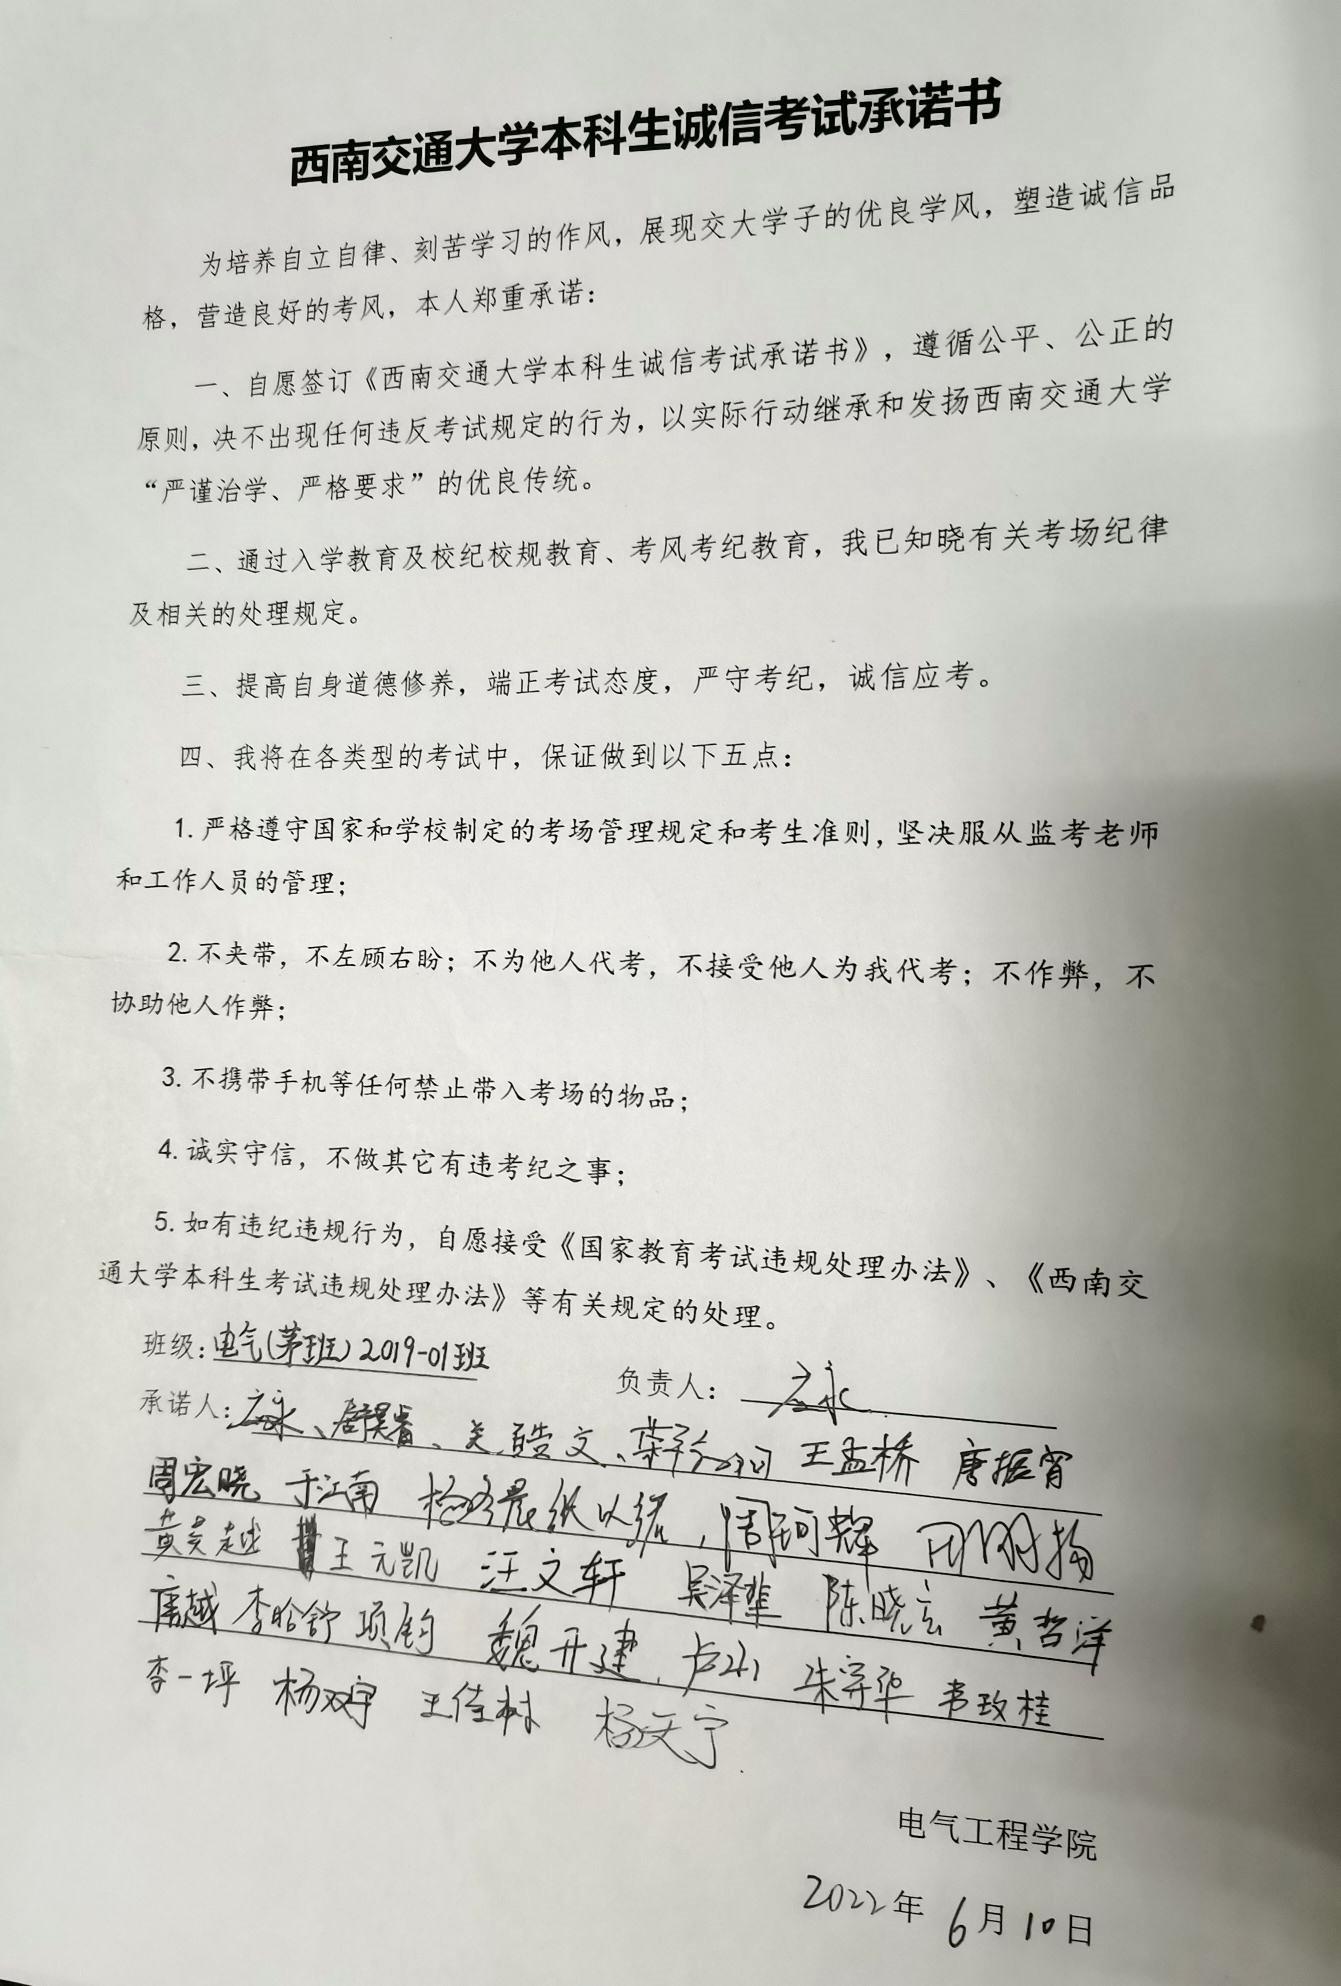 西南交通大学本科生诚信考试承诺书
为培养自立自律、刻苦学习的作风，展现交大学子的优良学风，塑造诚信品
格，营造良好的考风，本人郑重承诺：
一、自愿签订《西南交通大学本科生诚信考试承诺书》，遵循公平、公正的
原则，决不出现任何违反考试规定的行为，以实际行动继承和发扬西南交通大学
“严谨治学、严格要求”的优良传统。
二、通过入学教育及校纪校规教育、考风考纪教育，我已知晓有关考场纪律
及相关的处理规定。
三、提高自身道德修养，端正考试态度，严守考纪，诚信应考。
四、我将在各类型的考试中，保证做到以下五点：
1.严格遵守国家和学校制定的考场管理规定和考生准则，坚决服从监考老师
和工作人员的管理；
2.不夹带，不左顾右盼；不为他人代考，不接受他人为我代考；不作弊，不
协助他人作弊；
3.不携带手机等任何禁止带入考场的物品；
4.诚实守信，不做其它有违考纪之事；
5.如有违纪违规行为，自愿接受《国家教育考试违规处理办法》、《西南交
通大学本科生考试违规处理办法》等有关规定的处理。
班级：电气(茅班)2019-01班 负责人：
承诺人： 王孟桥 唐振宵
周宏晓 于江南 周珂辉
黄昊越 王元凯 汪文轩 吴泽 陈晓 黄哲洋
唐越 李晗舒 项钧 魏开建
李一坪 杨双宇 王佳树 杨文宁
电气工程学院
2022年6月10日